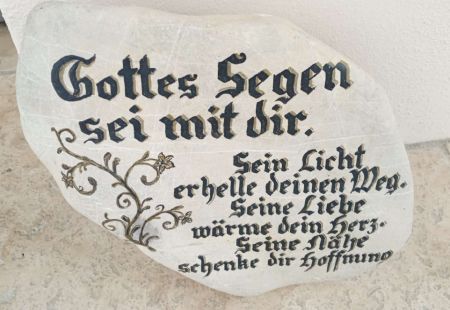 Gottes Segen
sei mit dir.
Sein Licht
erhelle deinen Weg.
Seine Liebe
wärme dein Herz.
Seine Nähe
schenke dir Hoffnung